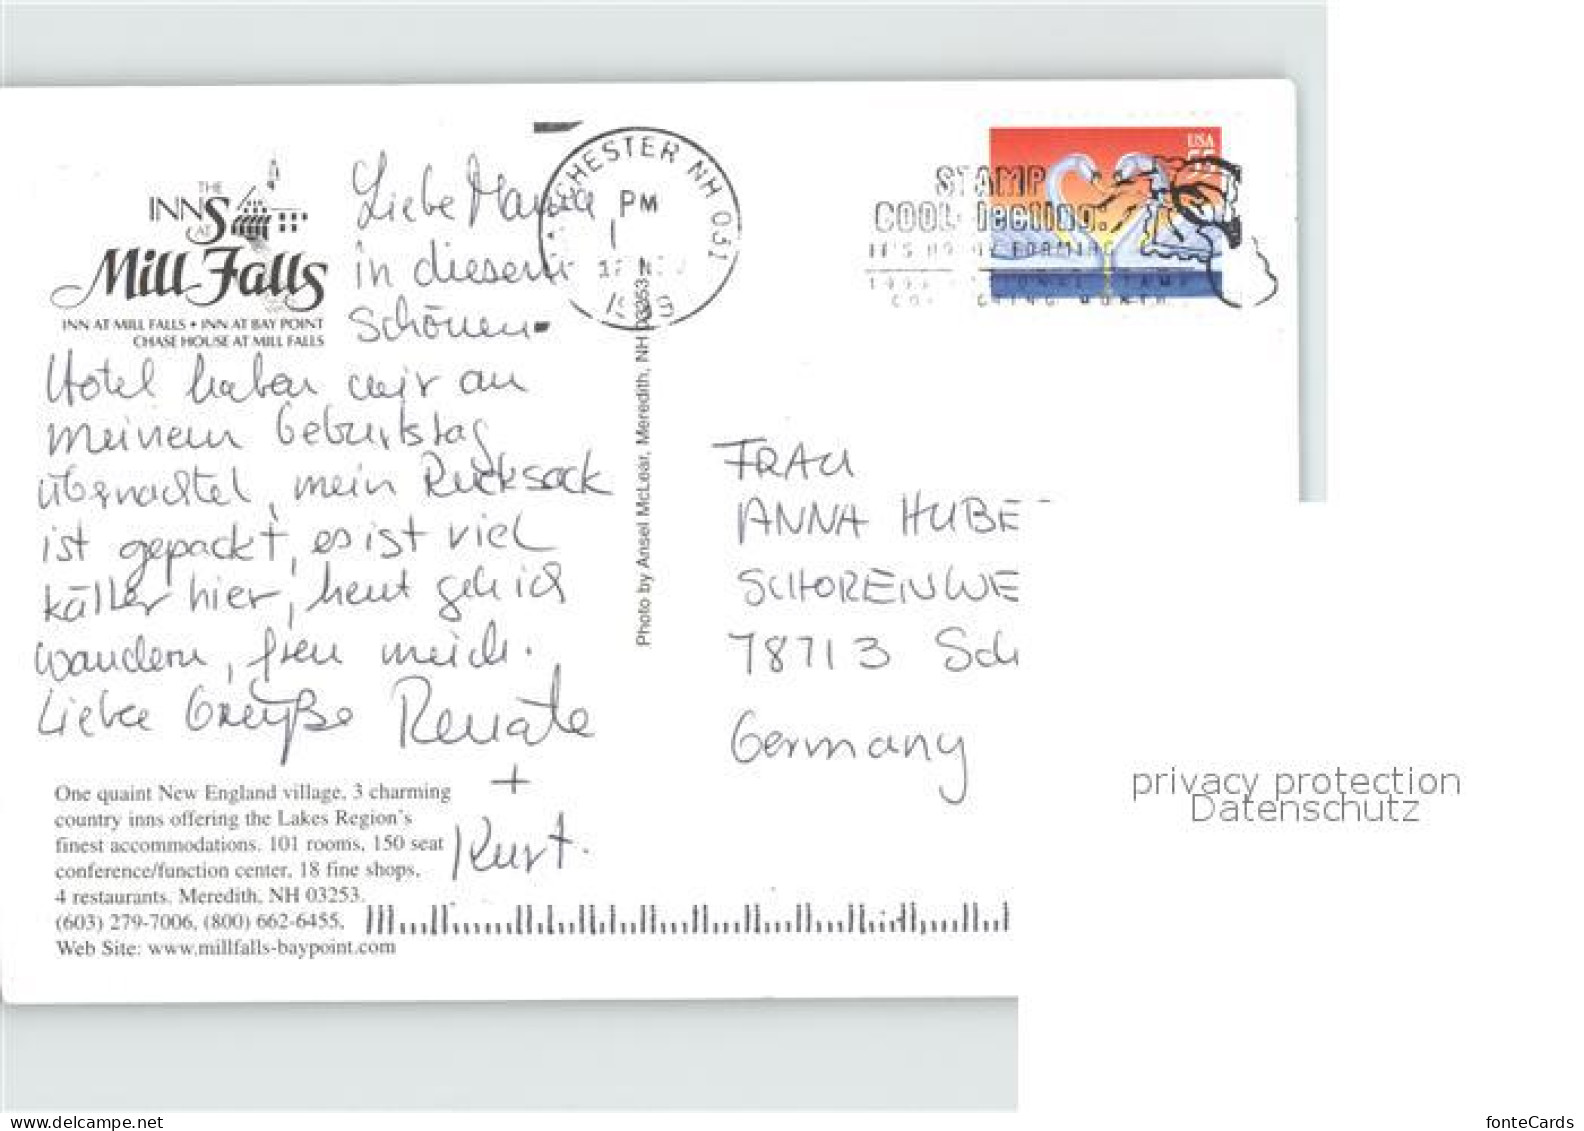 THE
INNS
AT
Mill Falls
INN AT MILL FALLS • INN AT BAY POINT
CHASE HOUSE AT MILL FALLS
Liebe
in diesem
schönen
Hotel haben wir an
meinem Geburtstag
übernachtet, mein Rucksack
ist gepackt, es ist viel
kälter hier, heut geh ich
wandern, freu mich.
Liebe Grüße Renate
+
Kurt.
One quaint New England village, 3 charming
country inns offering the Lakes Region's
finest accommodations. 101 rooms, 150 seat
conference/function center, 18 fine shops,
4 restaurants. Meredith, NH 03253.
(603) 279-7006, (800) 662-6455,
Web Site: www.millfalls-baypoint.com
Photo by Ansel McLear, Meredith, NH 03253
CHESTER NH 031
PM
USA
55
STAMP
COOLlecting:
FRAU
ANNA HUBE
SCHORENWE
78713 Sch
Germany
privacy protection
Datenschutz
www.delcampe.net
fonteCards